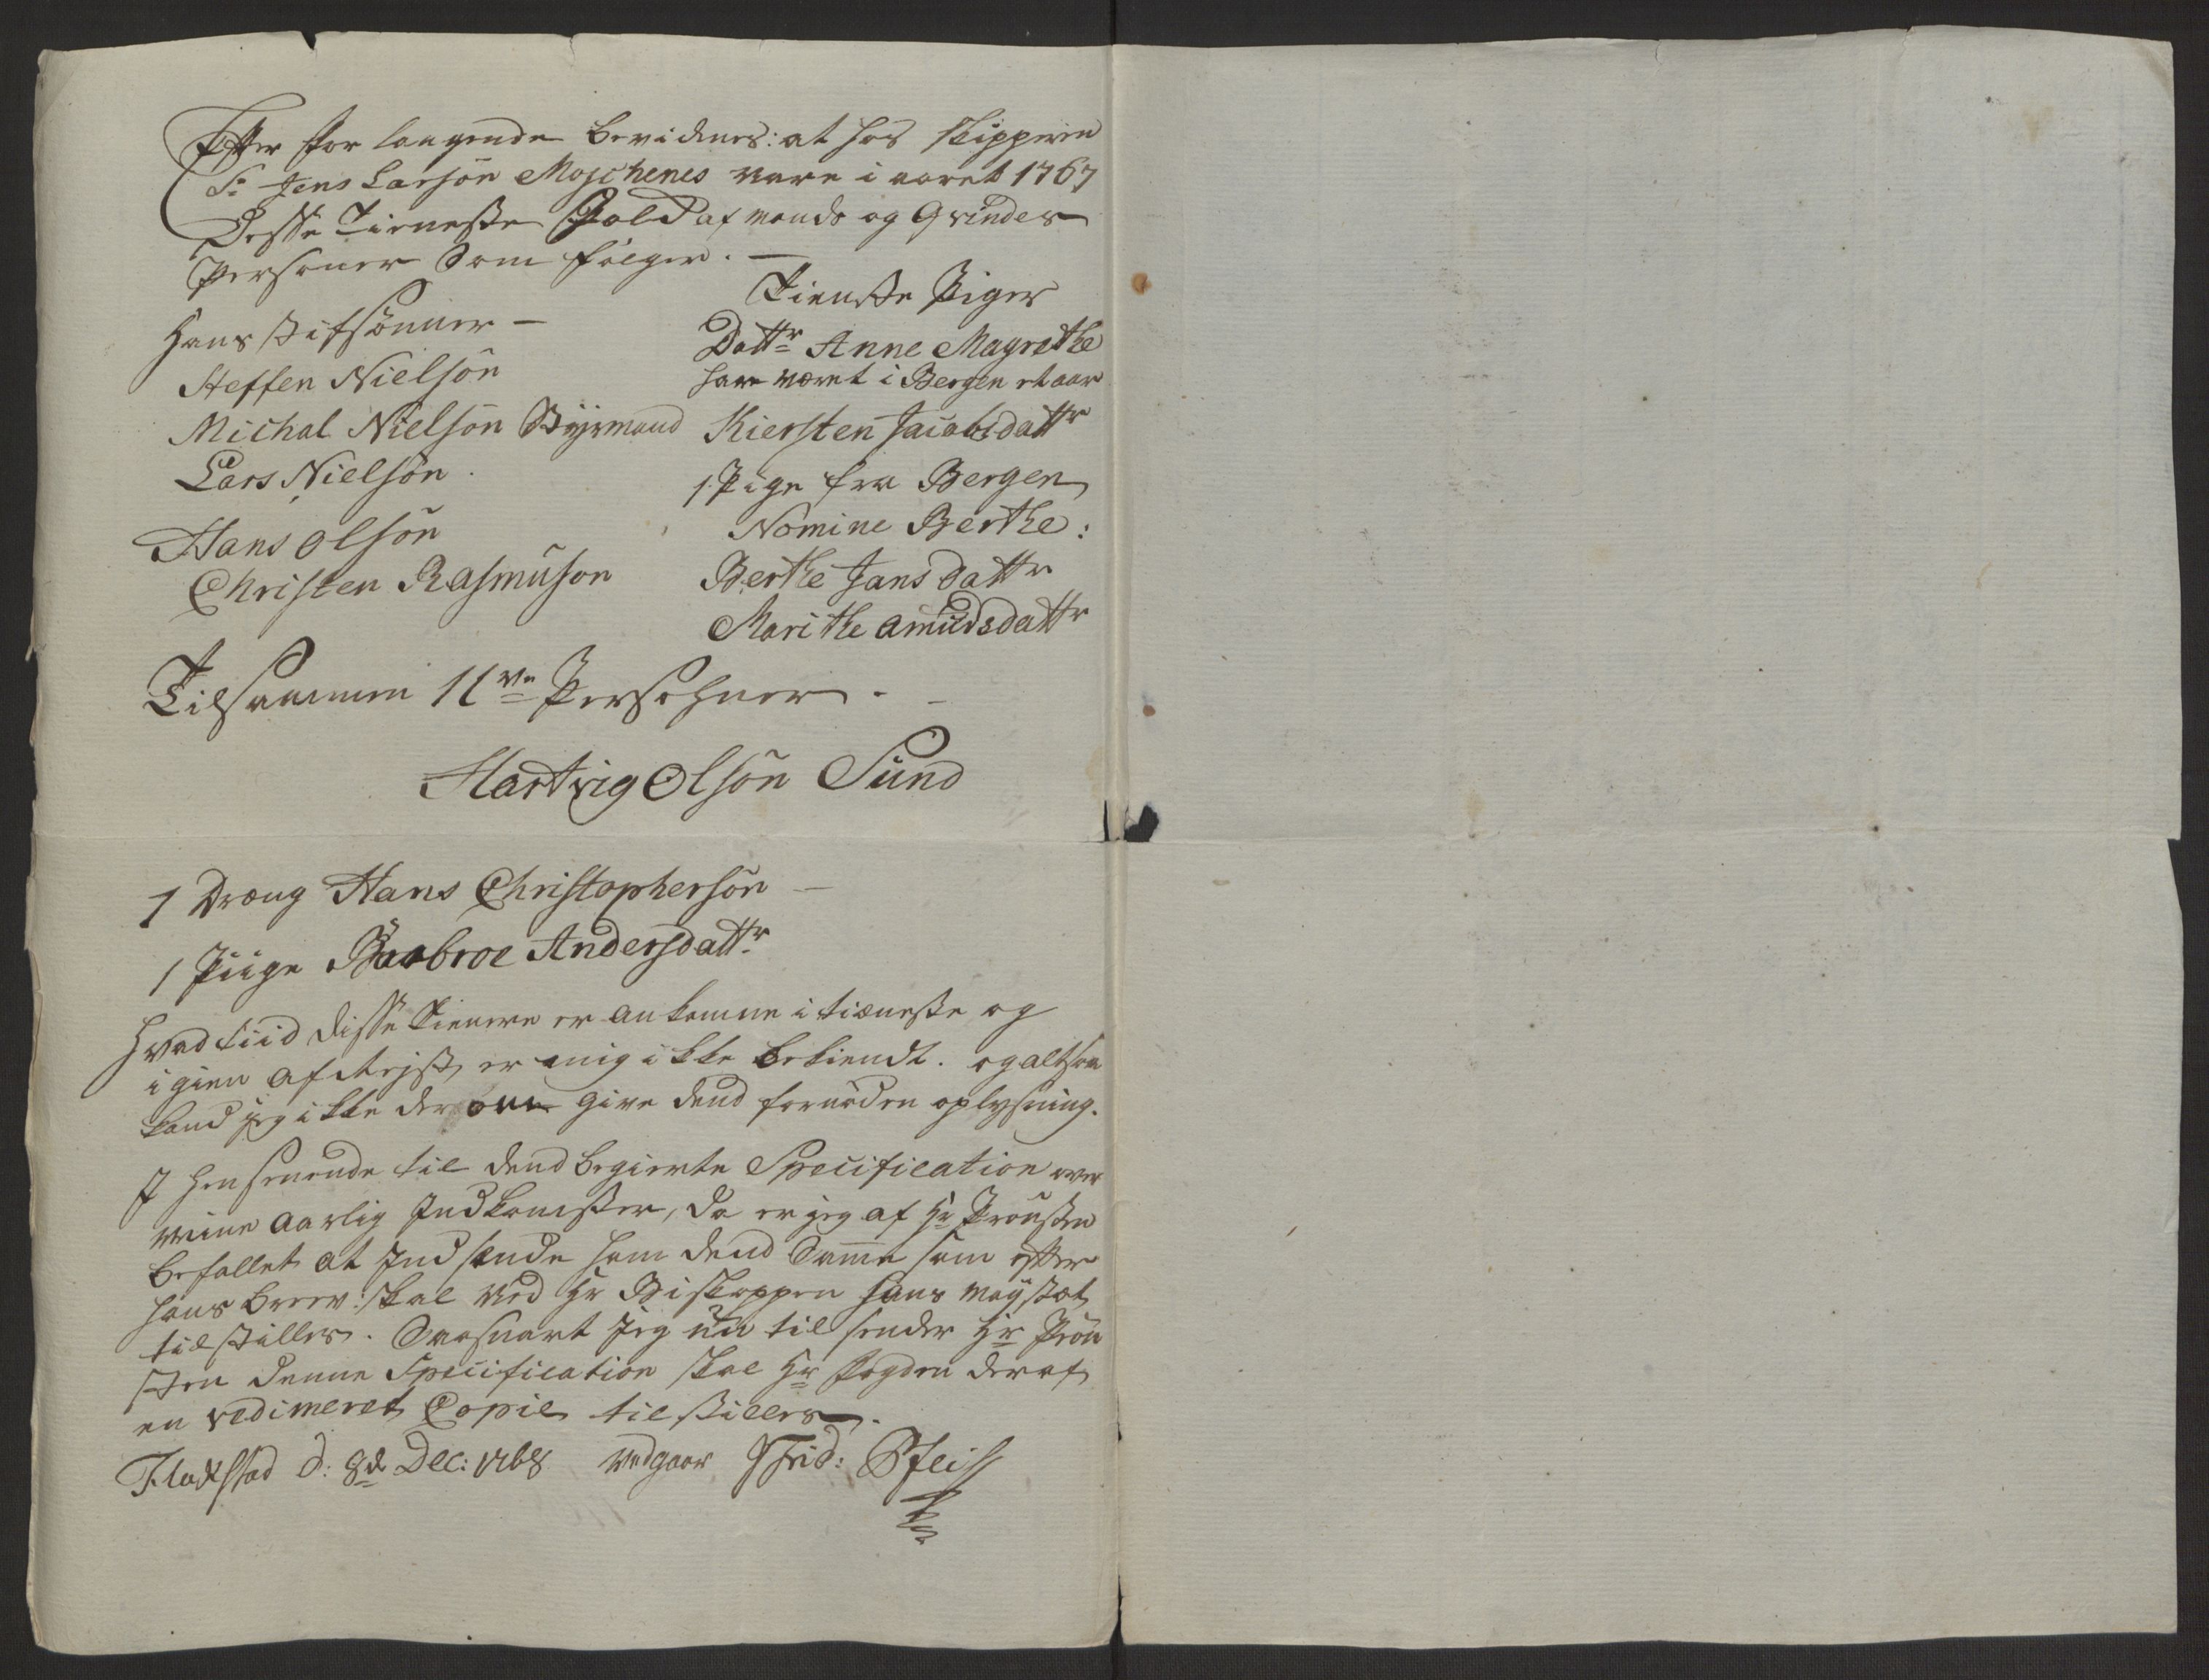 Efter for langende bevidnes: at hos skipperen
Sr. Jens Larsön Moschenes vare i aaret 1767
Desse Tieneste Fold af mands og Qvindes
Personer Som fölger. —
Hans stifsönner —
Steffen Nielsön
Michal Nielsön Styrmand
Lars Nielsön.
Hans Olsön
Christen Rasmuson
Tieneste Piger
Dattr Anne Magrethe
have været i Bergen et aar
Kiersten Jacobsdattr
1 Pige fra Bergen
Nomine Berthe:
Berthe Jansdattr
Marithe Amudsdattr
Tilsammen 11ve Persohner. —
Hartvig Olsön Sund
1 Dreng Hans Christophersön —
1 Piige Baabroe Andersdattr
Hvad tiid disse Tienere er ankomne i tieneste og
igien af Rejst, er mig ikke bekiendt. og altsaa
kand jeg ikke der om give dend fornöden oplysning.
I henseende til dend begierte Specification over
mine aarlig Indkomster, da er jeg af Hr Prousten
befallet at Indsende ham dend Samme som efter
hans brev: skal ved Hr Biskoppen hans mayestæt
tilstilles. Saasnart Jeg nu tilsender Hr Prou
sten denne Specification skal Hr Fogden deraf
en vedimeret Copie tilstilles.
Flakstad d: 8de Dec: 1768 vedgaar Frid: